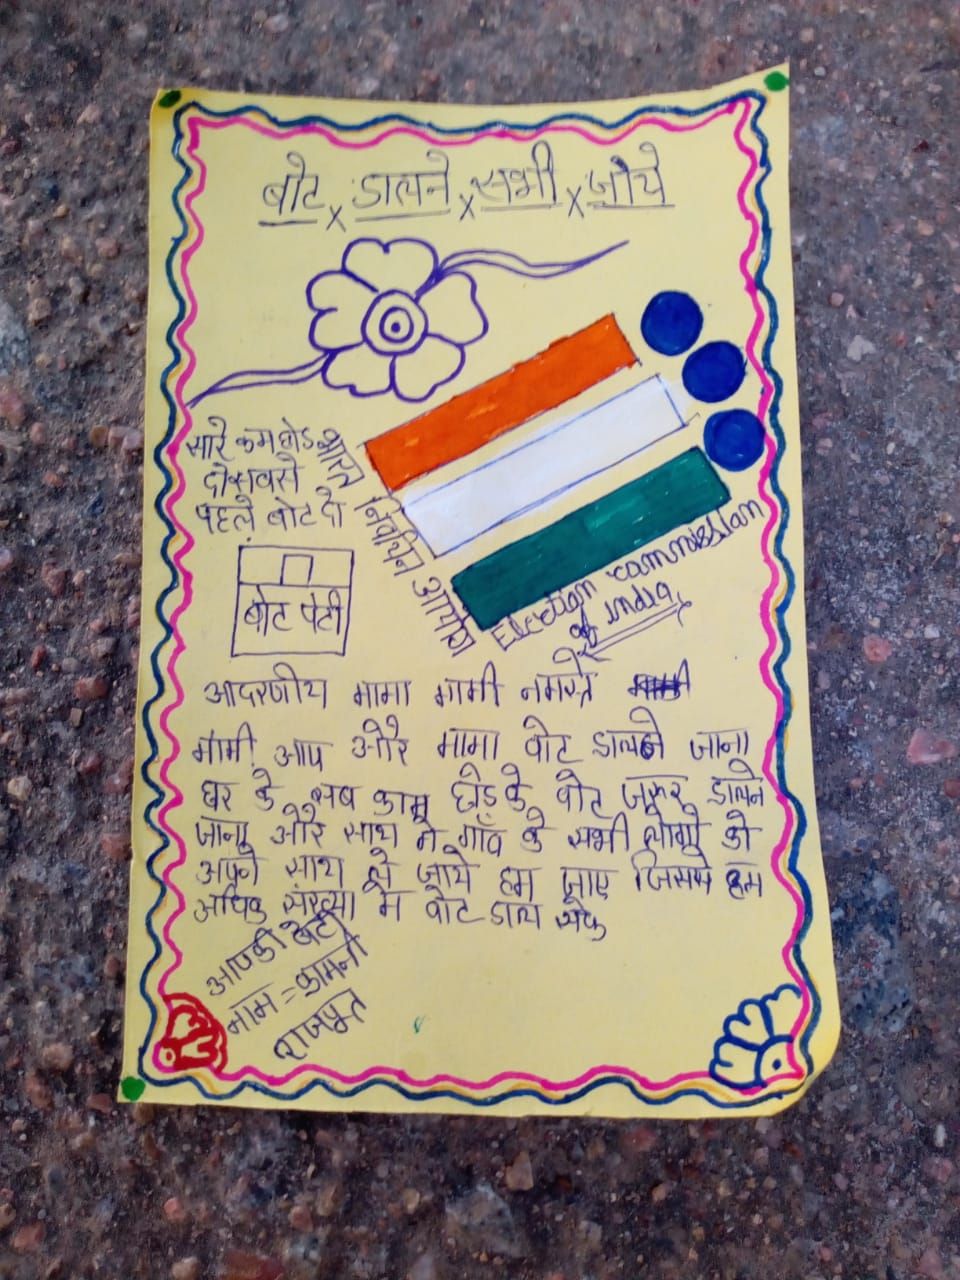 बोट x डालने x सभी x जाये
सारे काम छोड
दो सबसे
पहले बोट दो
भारत निर्वाचन आयोग
Election commission
of india
बोट पेटी
आदरणीय मामा मामी नमस्ते
मामी आप और मामा वोट डालने जाना
घर के सब काम छोड़ के वोट जरूर डालने
जाना और साथ में गाँव के सभी लोगो को
अपने साथ ले जाये हम जाए जिससे हम
अधिक संख्या में वोट डाल सके
आपकी बेटी
नाम = कामनी
राजपूत